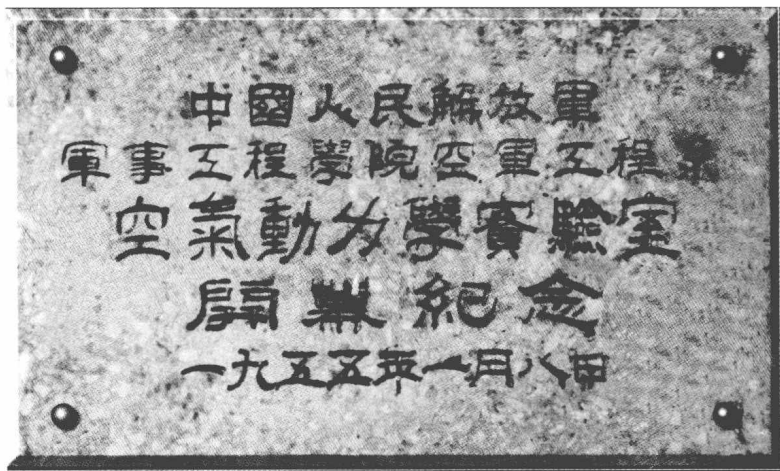 中國人民解放軍
軍事工程學院空軍工程系
空氣動力學實驗室
開幕紀念
一九五五年一月八日